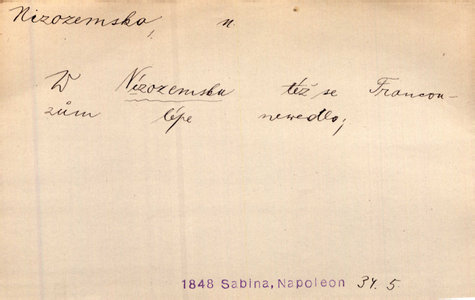 Nizozemsko, n.
W Nizozemsku též se Francou-
zům lépe newedlo;
1848 Sabina, Napoleon 34. 5.